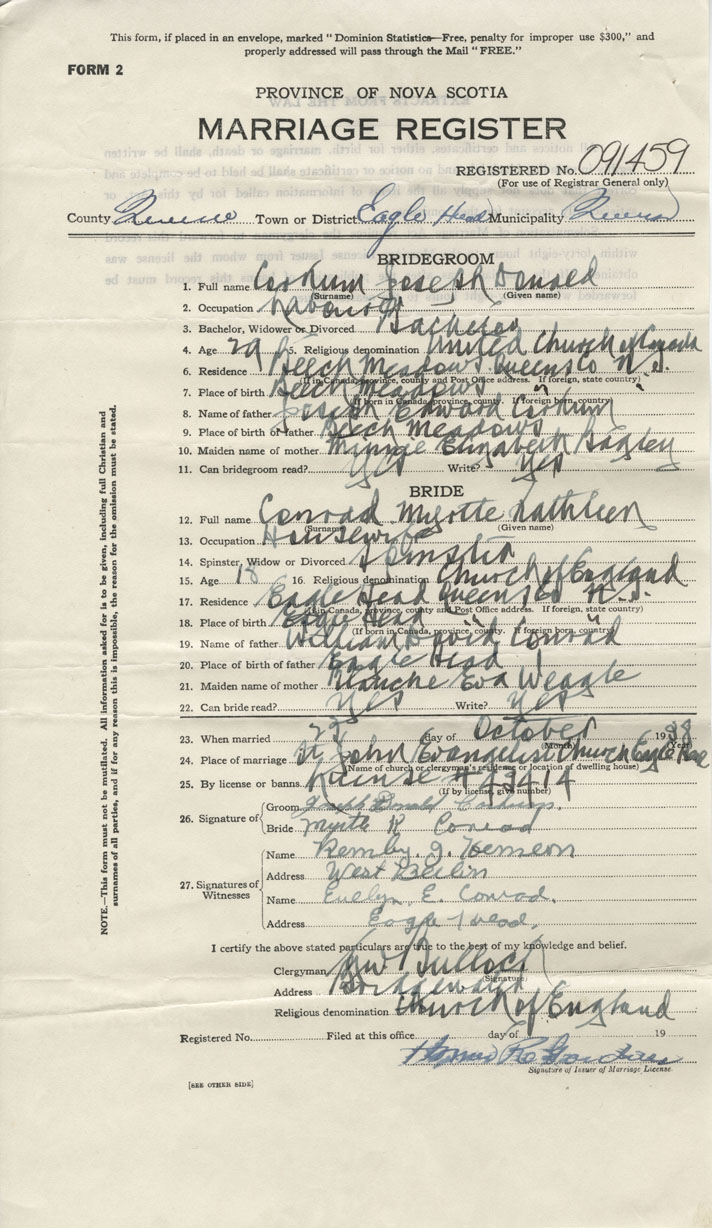 This form, if placed in an envelope, marked " Dominion Statistics—Free, penalty for improper use $300," and
properly addressed will pass through the Mail " FREE."
FORM 2
PROVINCE OF NOVA SCOTIA
MARRIAGE REGISTER
REGISTERED No. 091459
(For use of Registrar General only)
County Queens Town or District Eagle Head Municipality Queens
BRIDEGROOM
1. Full name Corkum Joseph Donald
(Surname) (Given name)
2. Occupation Labourer
3. Bachelor, Widower or Divorced Bachelor
4. Age 29 5. Religious denomination United Church of Canada
6. Residence Beech Meadows Queens Co N.S.
(If in Canada, province, county and Post Office address. If foreign, state country)
7. Place of birth Beech Meadows
(If born in Canada, province, county. If foreign born, country)
8. Name of father Joseph Edward Corkum
9. Place of birth of father Beech Meadows
10. Maiden name of mother Minnie Elizabeth Bagley
11. Can bridegroom read? Yes Write? Yes
BRIDE
12. Full name Conrad Myrtle Kathleen
(Surname) (Given name)
13. Occupation Housewife
14. Spinster, Widow or Divorced Spinster
15. Age 18 16. Religious denomination Church of England
17. Residence Eagle Head Queens Co N.S.
(If in Canada, province, county and Post Office address. If foreign, state country)
18. Place of birth Eagle Head
(If born in Canada, province, county. If foreign born, country)
19. Name of father William David Conrad
20. Place of birth of father Eagle Head
21. Maiden name of mother Blanche Eva Weagle
22. Can bride read? Yes Write? Yes
23. When married day of October 19
(Month) (Year)
24. Place of marriage St John Evangelist Church Eagle Head
(Name of church or clergyman's residence or location of dwelling house)
25. By license or banns License # 43414
(If by license, give number)
26. Signature of
Groom Joseph Donald Corkum.
Bride Myrtle K Conrad
27. Signatures of
Witnesses
Name
Address West Berlin
Name Evelyn E. Conrad.
Address Eagle Head.
I certify the above stated particulars are true to the best of my knowledge and belief.
Clergyman Bulloch
(Signature)
Address
Religious denomination Church of England
Registered No. Filed at this office day of 19
Signature of Issuer of Marriage License.
[SEE OTHER SIDE]
NOTE.—This form must not be mutilated. All information asked for is to be given, including full Christian and
surnames of all parties, and if for any reason this is impossible, the reason for the omission must be stated.